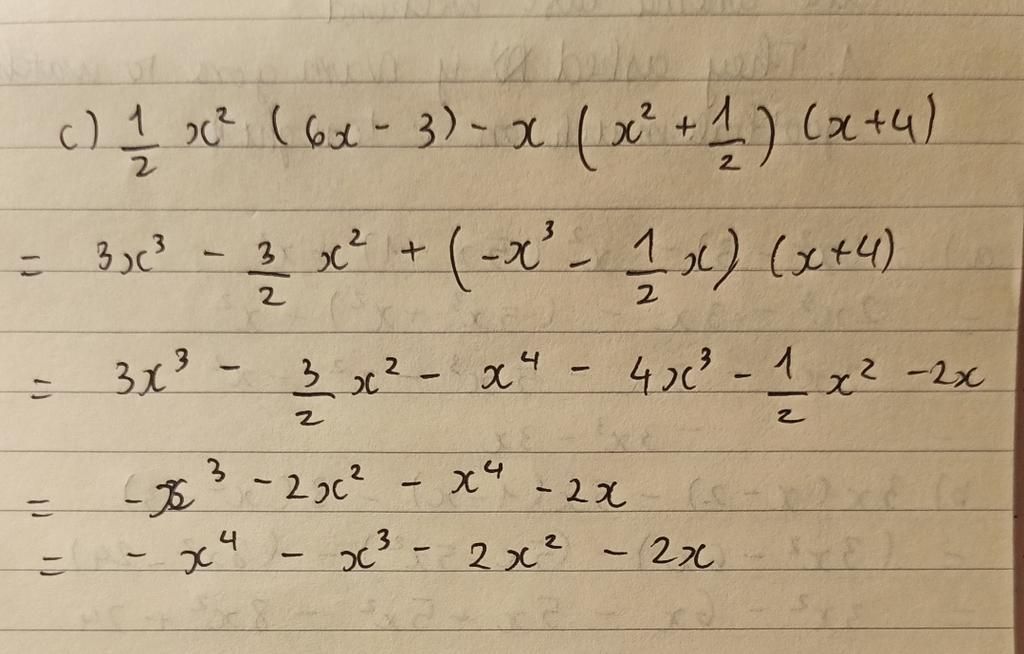 c) 1/2 x² (6x - 3) - x (x² + 1/2) (x+4)
= 3x³ - 3/2 x² + (-x³ - 1/2 x) (x+4)
= 3x³ - 3/2 x² - x⁴ - 4x³ - 1/2 x² - 2x
= - x³ - 2x² - x⁴ - 2x
= - x⁴ - x³ - 2x² - 2x